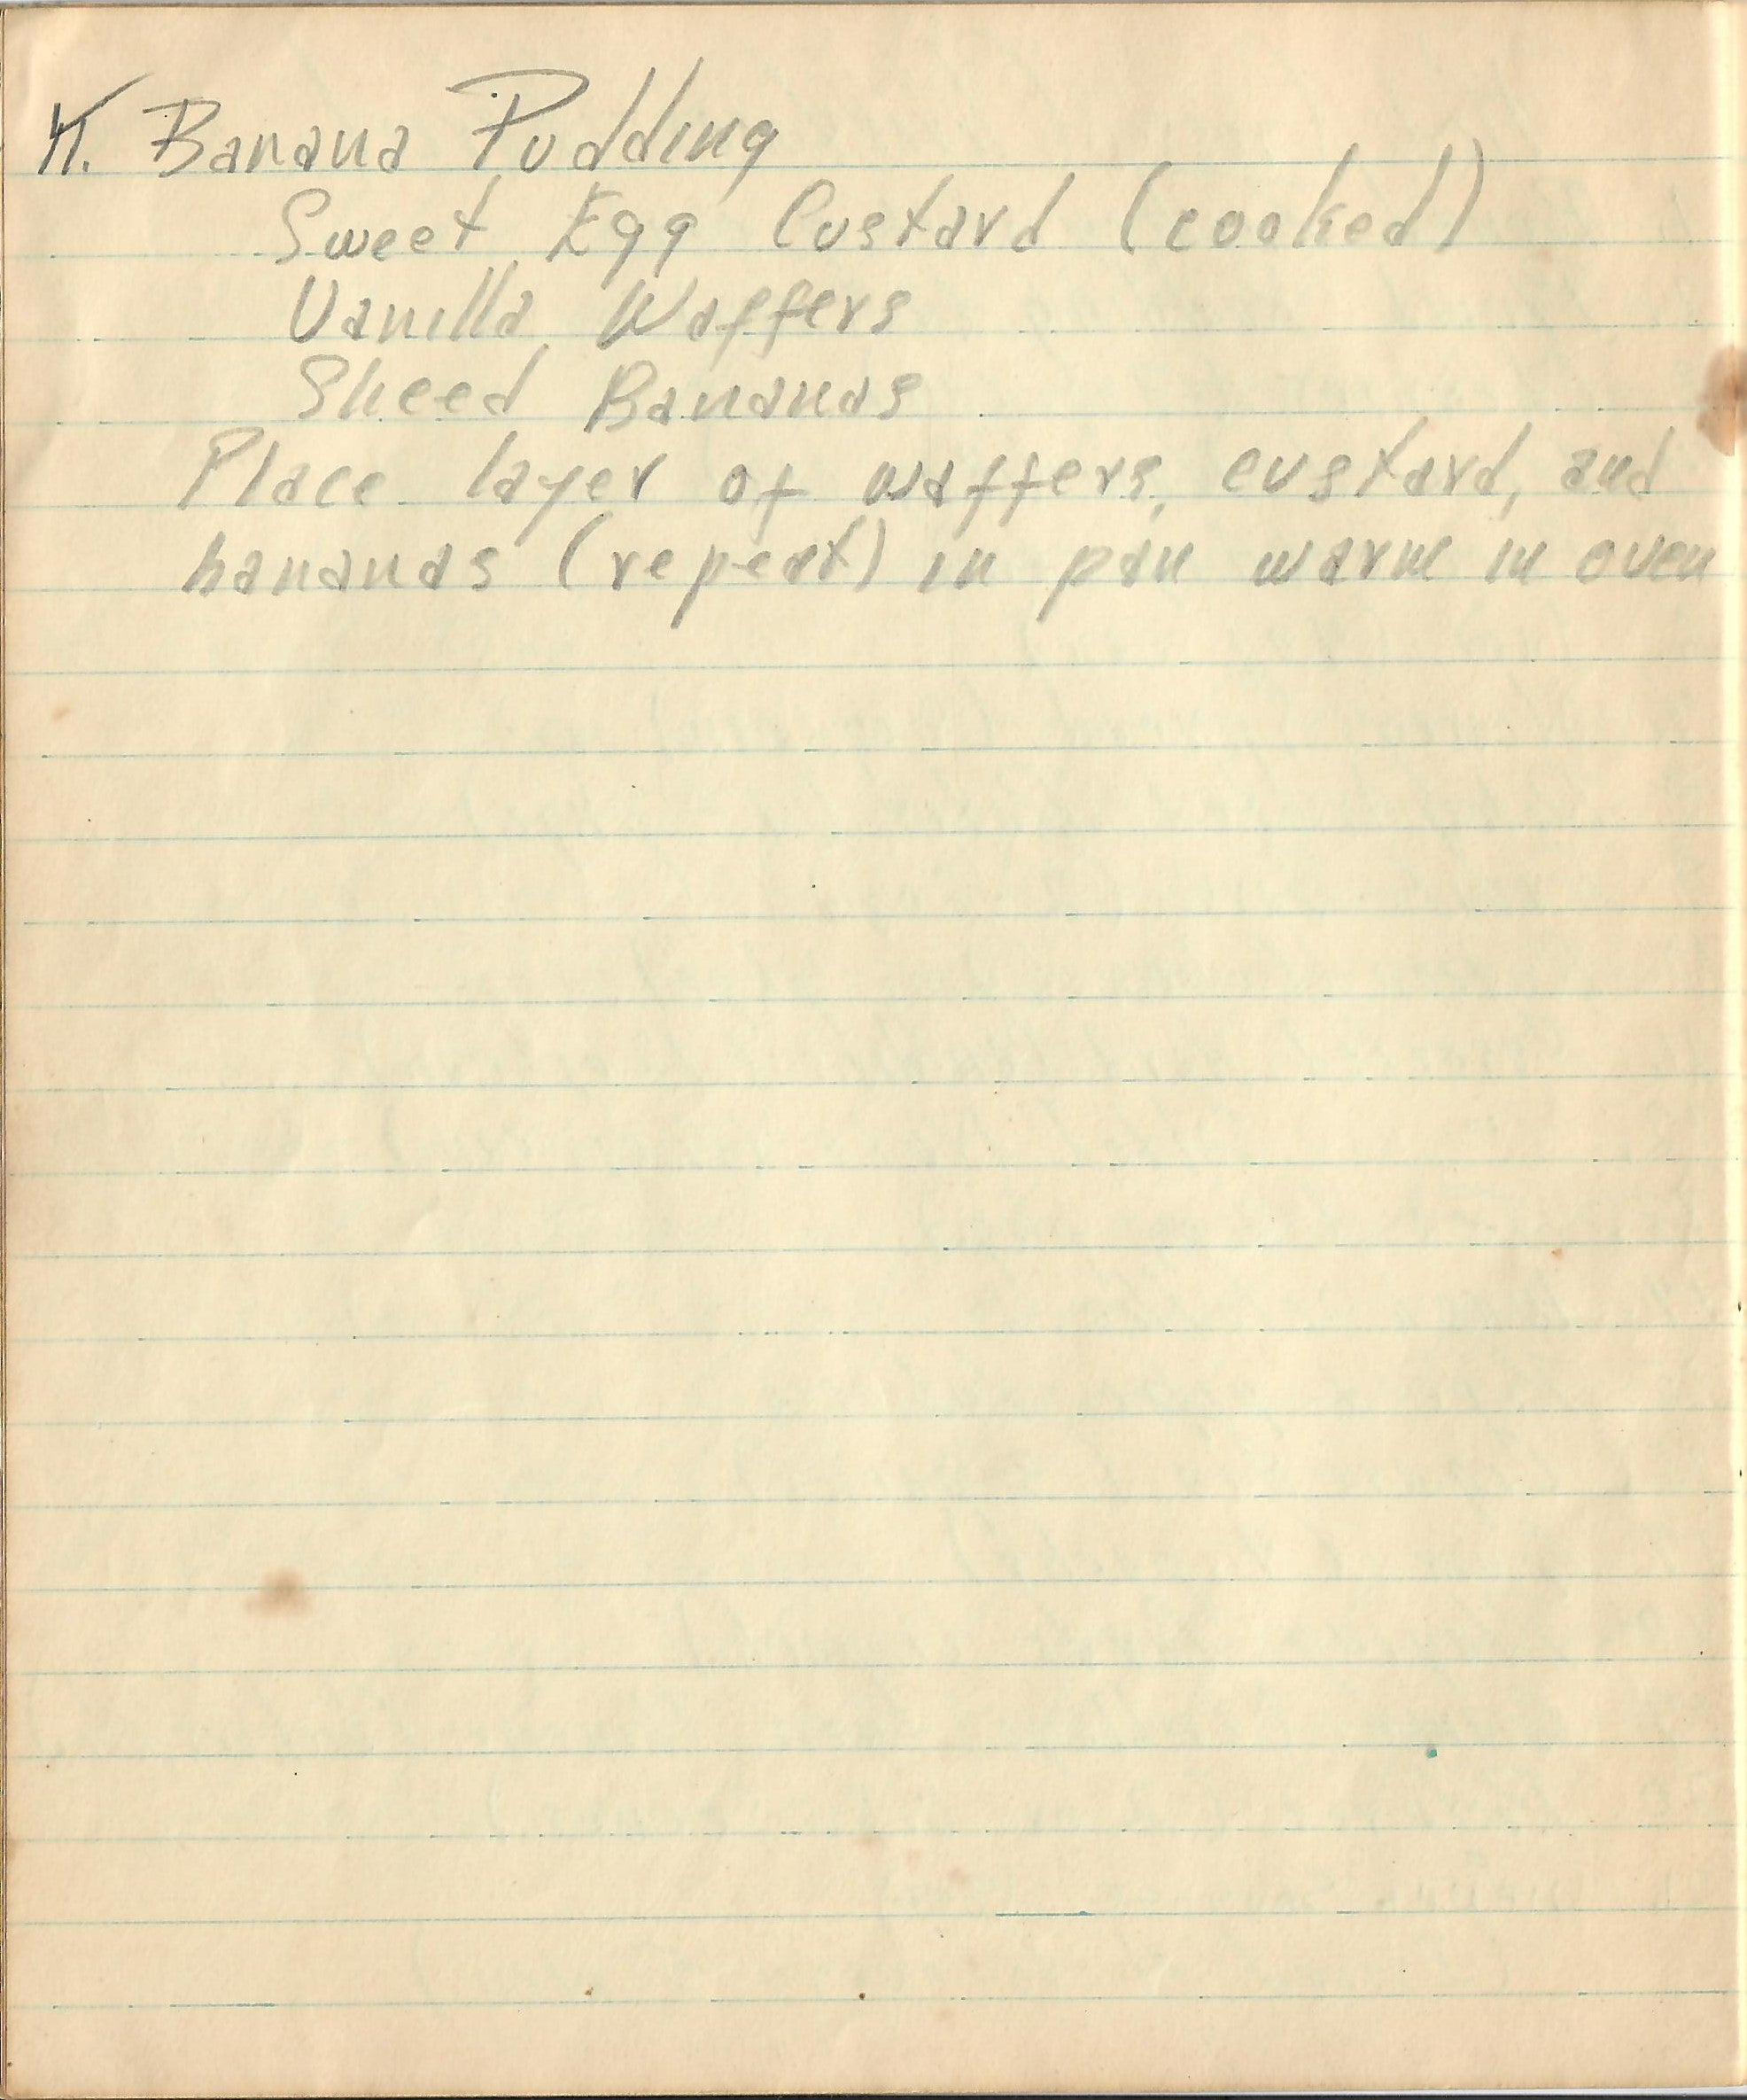 K. Banana Pudding
Sweet Egg Custard (cooked)
Vanilla Waffers
Sliced Bananas
Place layer of waffers, custard, and
bananas (repeat) in pan warm in oven